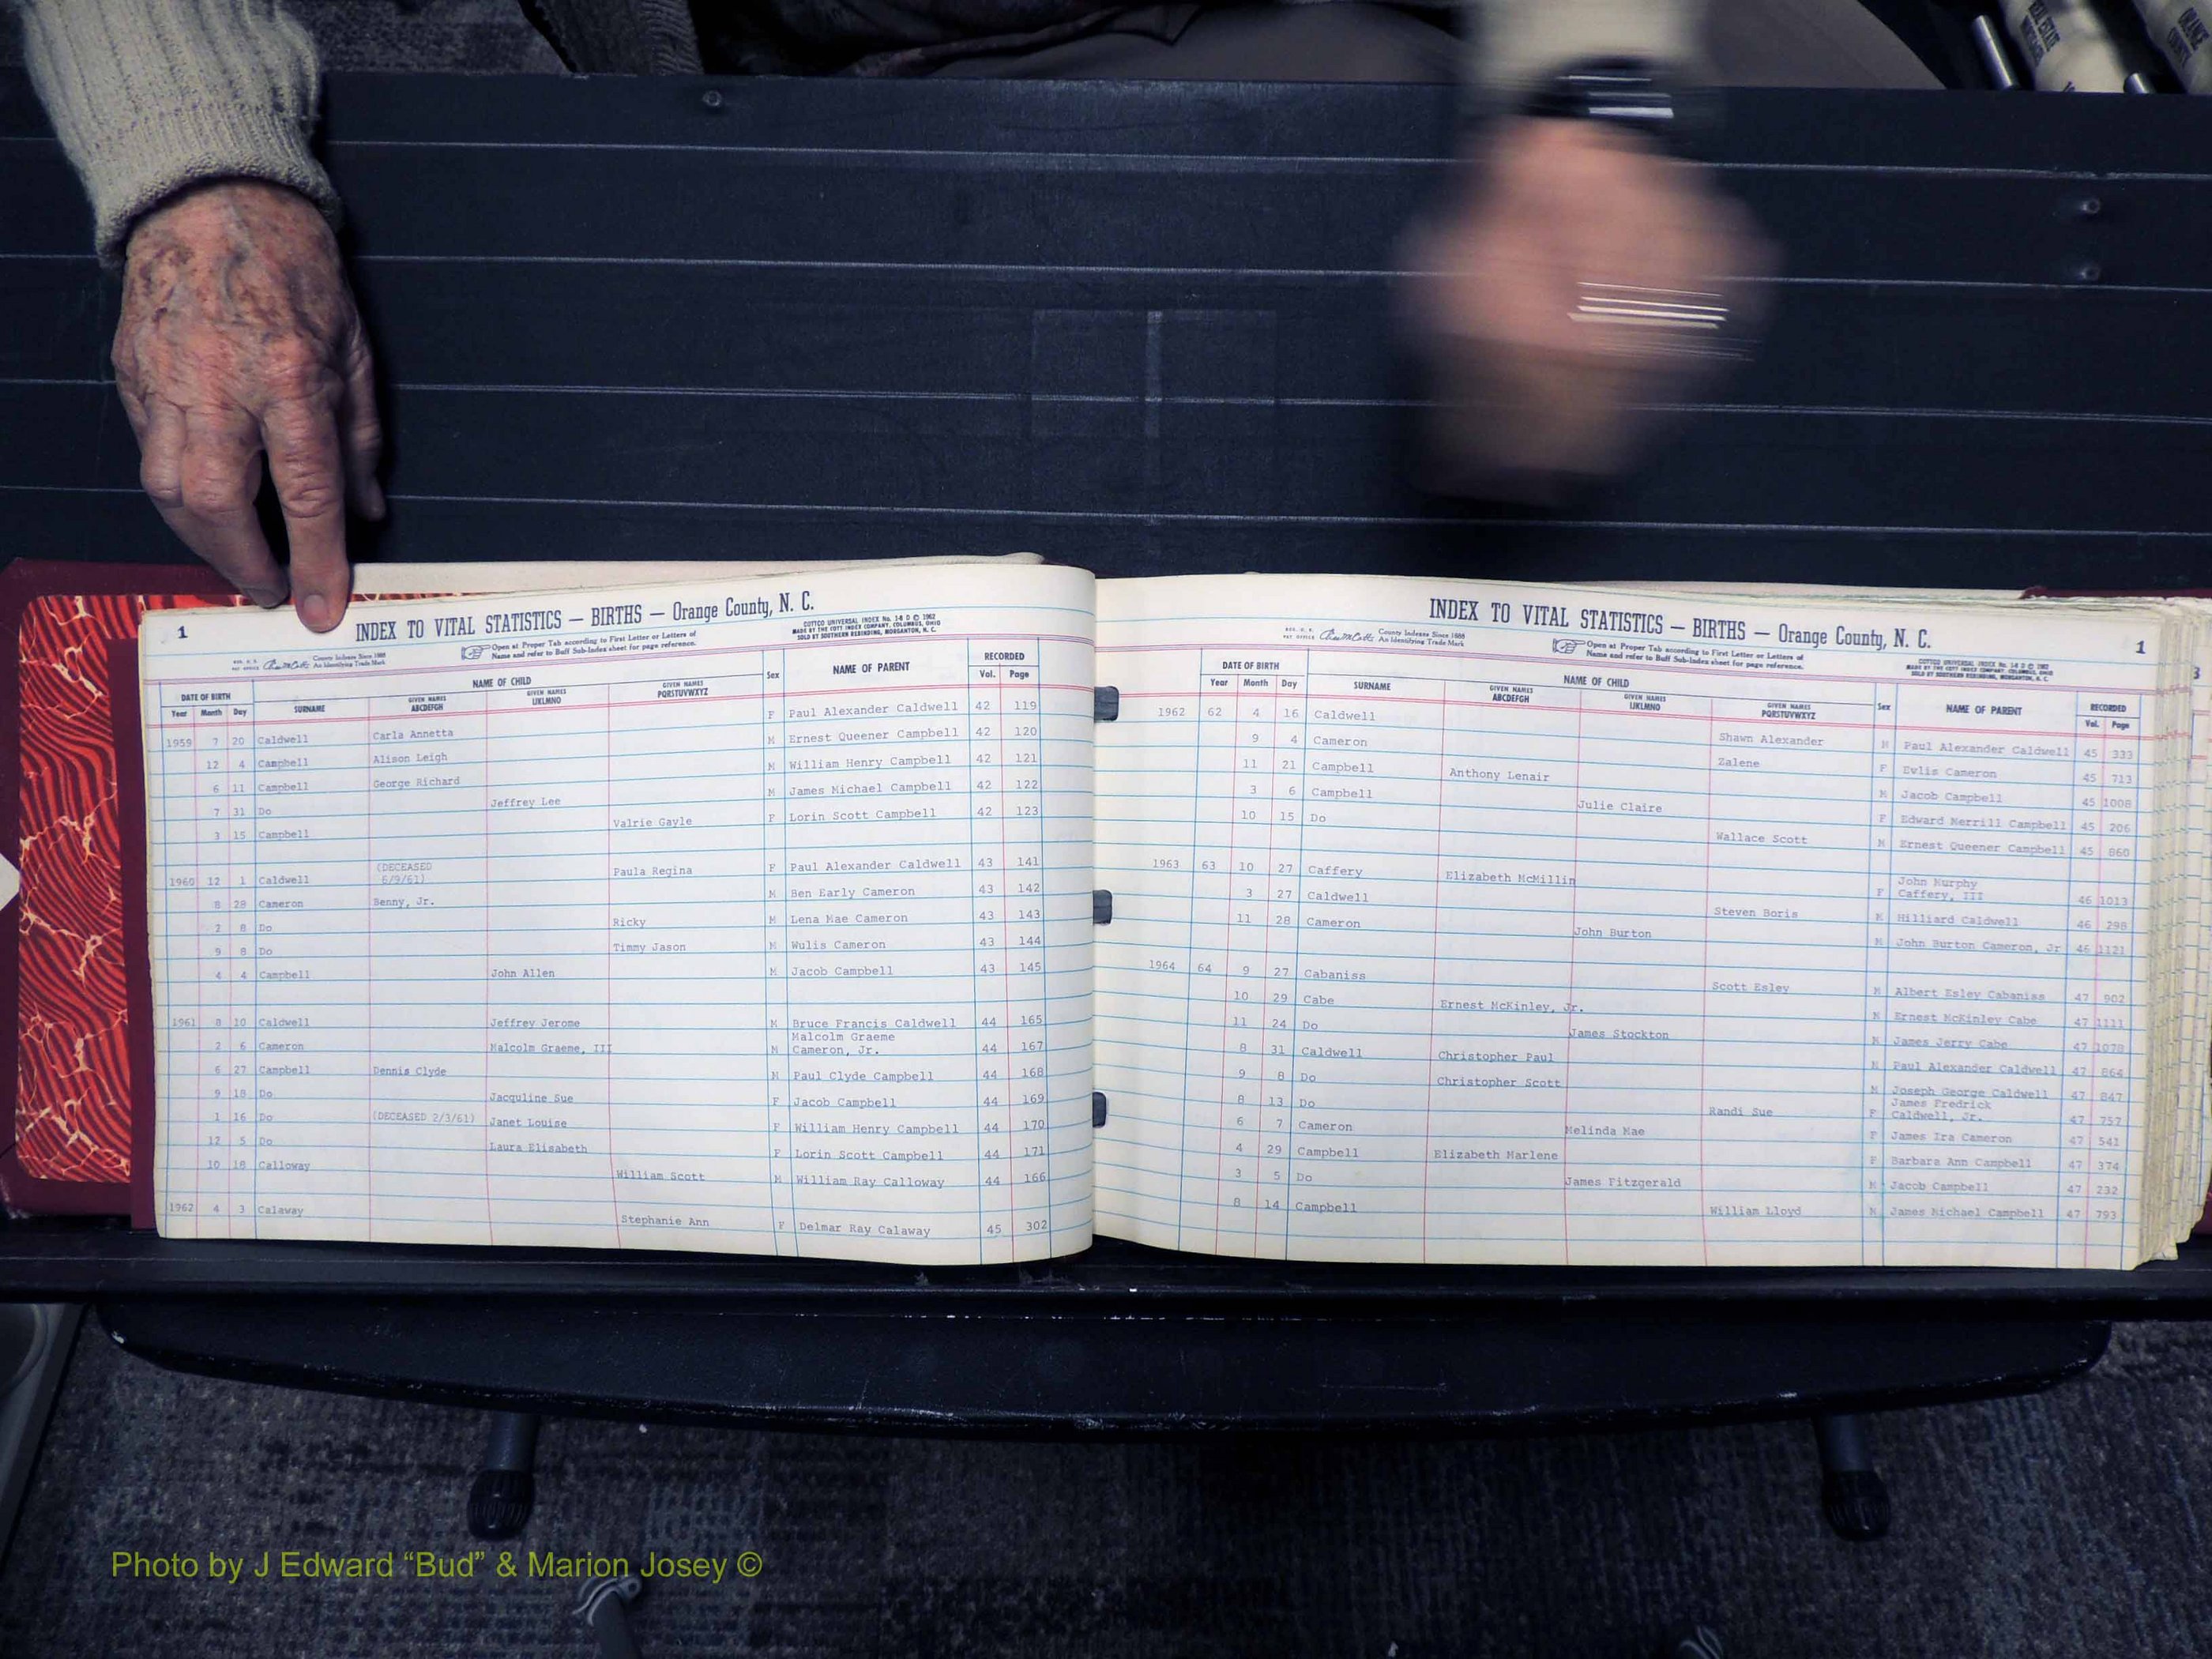 REAL ESTATE
ORANGE COUNTY
1
INDEX TO VITAL STATISTICS — BIRTHS — Orange County, N. C.
County Indexes Since 1888
An Identifying Trade Mark
Open at Proper Tab according to First Letter or Letters of
Name and refer to Buff Sub-Index sheet for page reference.
COTTCO UNIVERSAL INDEX No. 14 D © 1962
MADE BY THE COTT INDEX COMPANY, COLUMBUS, OHIO
SOLD BY SOUTHERN REBINDING, MORGANTON, N. C.
DATE OF BIRTH NAME OF CHILD Sex NAME OF PARENT RECORDED
Year Month Day SURNAME GIVEN NAMES ABCDEFGH GIVEN NAMES IJKLMNO GIVEN NAMES PQRSTUVWXYZ Vol. Page
1959 7 20 Caldwell Carla Annetta F Paul Alexander Caldwell 42 119
12 4 Campbell Alison Leigh M Ernest Queener Campbell 42 120
6 11 Campbell George Richard M William Henry Campbell 42 121
7 31 Do Jeffrey Lee M James Michael Campbell 42 122
3 15 Campbell Valrie Gayle F Lorin Scott Campbell 42 123
1960 12 1 Caldwell (DECEASED 6/9/61) Paula Regina F Paul Alexander Caldwell 43 141
8 28 Cameron Benny, Jr. M Ben Early Cameron 43 142
2 8 Do Ricky M Lena Mae Cameron 43 143
9 8 Do Timmy Jason M Wulis Cameron 43 144
4 4 Campbell John Allen M Jacob Campbell 43 145
1961 8 10 Caldwell Jeffrey Jerome M Bruce Francis Caldwell 44 165
2 6 Cameron Malcolm Graeme, III M Malcolm Graeme Cameron, Jr. 44 167
6 27 Campbell Dennis Clyde M Paul Clyde Campbell 44 168
9 18 Do Jacquline Sue F Jacob Campbell 44 169
1 16 Do (DECEASED 2/3/61) Janet Louise F William Henry Campbell 44 170
12 5 Do Laura Elisabeth F Lorin Scott Campbell 44 171
10 18 Calloway William Scott M William Ray Calloway 44 166
1962 4 3 Calaway Stephanie Ann F Delmar Ray Calaway 45 302
INDEX TO VITAL STATISTICS — BIRTHS — Orange County, N. C.
1
County Indexes Since 1888
An Identifying Trade Mark
Open at Proper Tab according to First Letter or Letters of
Name and refer to Buff Sub-Index sheet for page reference.
COTTCO UNIVERSAL INDEX No. 14 D © 1962
MADE BY THE COTT INDEX COMPANY, COLUMBUS, OHIO
SOLD BY SOUTHERN REBINDING, MORGANTON, N. C.
DATE OF BIRTH NAME OF CHILD Sex NAME OF PARENT RECORDED
Year Month Day SURNAME GIVEN NAMES ABCDEFGH GIVEN NAMES IJKLMNO GIVEN NAMES PQRSTUVWXYZ Vol. Page
1962 62 4 16 Caldwell Shawn Alexander M Paul Alexander Caldwell 45 333
9 4 Cameron Zalene F Evlis Cameron 45 713
11 21 Campbell Anthony Lenair M Jacob Campbell 45 1008
3 6 Campbell Julie Claire F Edward Merrill Campbell 45 206
10 15 Do Wallace Scott M Ernest Queener Campbell 45 860
1963 63 10 27 Caffery Elizabeth McMillin F John Murphy Caffery, III 46 1013
3 27 Caldwell Steven Boris M Hilliard Caldwell 46 298
11 28 Cameron John Burton M John Burton Cameron, Jr 46 1121
1964 64 9 27 Cabaniss Scott Esley M Albert Esley Cabaniss 47 902
10 29 Cabe Ernest McKinley, Jr. M Ernest McKinley Cabe 47 1111
11 24 Do James Stockton M James Jerry Cabe 47 1078
8 31 Caldwell Christopher Paul M Paul Alexander Caldwell 47 864
9 8 Do Christopher Scott M Joseph George Caldwell 47 847
8 13 Do Randi Sue F James Fredrick Caldwell, Jr. 47 757
6 7 Cameron Melinda Mae F James Ira Cameron 47 541
4 29 Campbell Elizabeth Marlene F Barbara Ann Campbell 47 374
3 5 Do James Fitzgerald M Jacob Campbell 47 232
8 14 Campbell William Lloyd M James Michael Campbell 47 793
3
Photo by J Edward “Bud” & Marion Josey ©